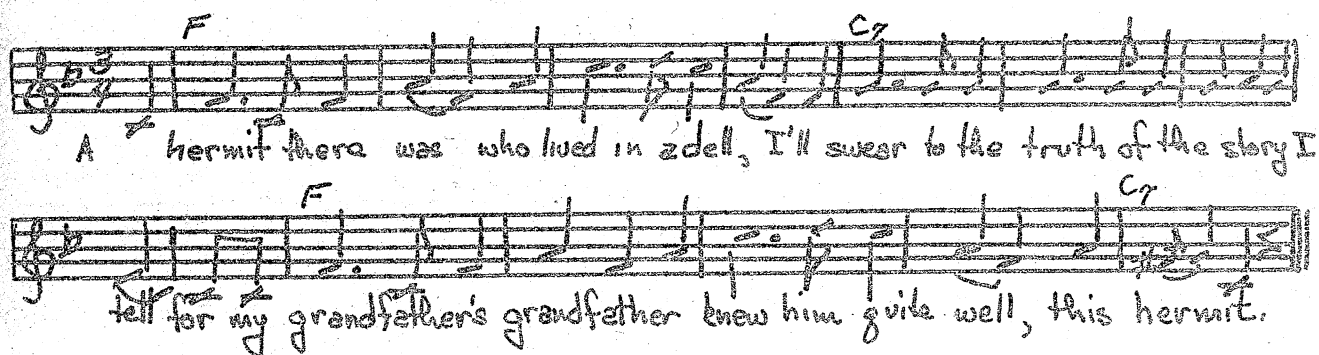 F C7
3
4
A hermit there was who lived in a dell, I'll swear to the truth of the story I
F C7
tell for my grandfather's grandfather knew him quite well, this hermit.